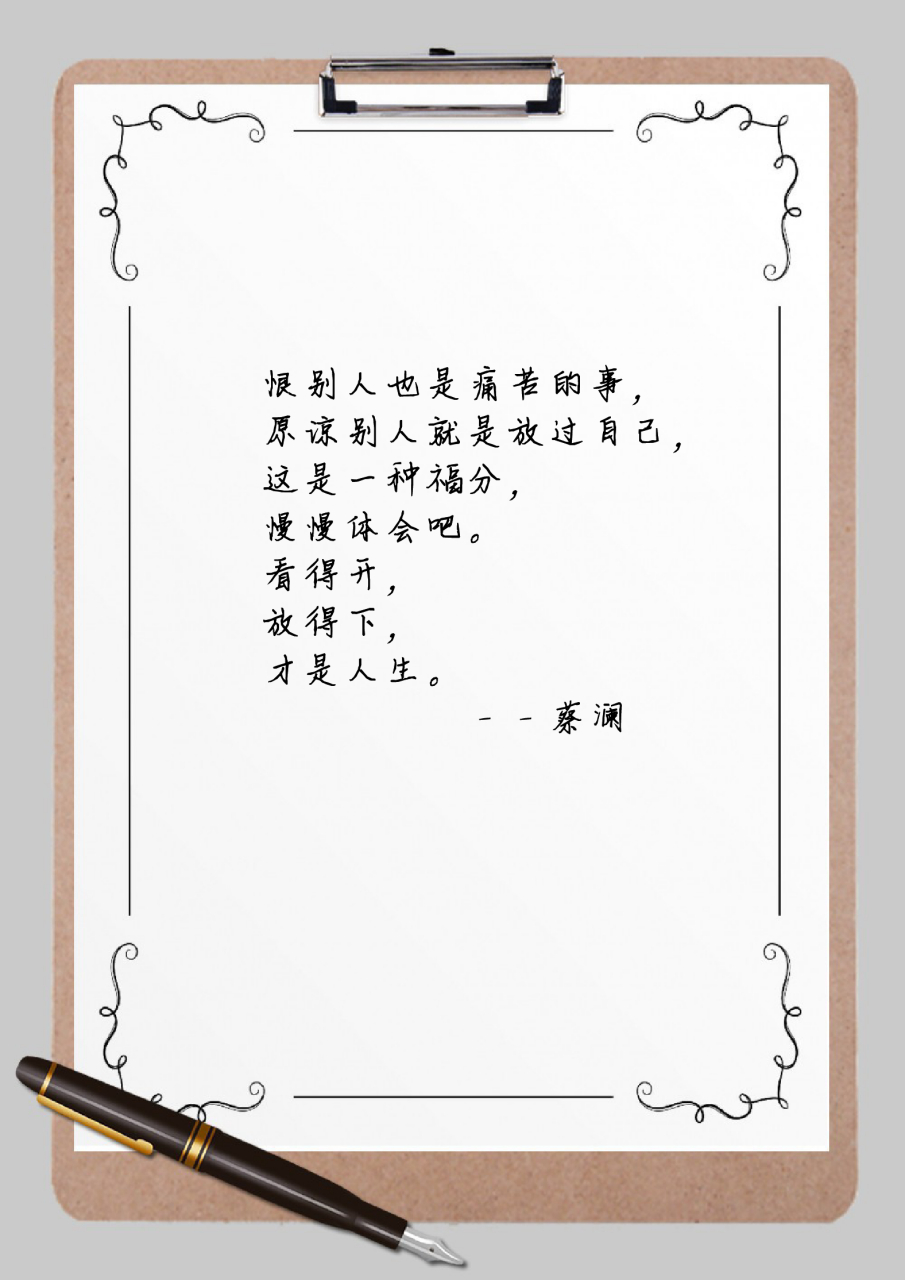 恨别人也是痛苦的事，
原谅别人就是放过自己，
这是一种福分，
慢慢体会吧。
看得开，
放得下，
才是人生。
--蔡澜